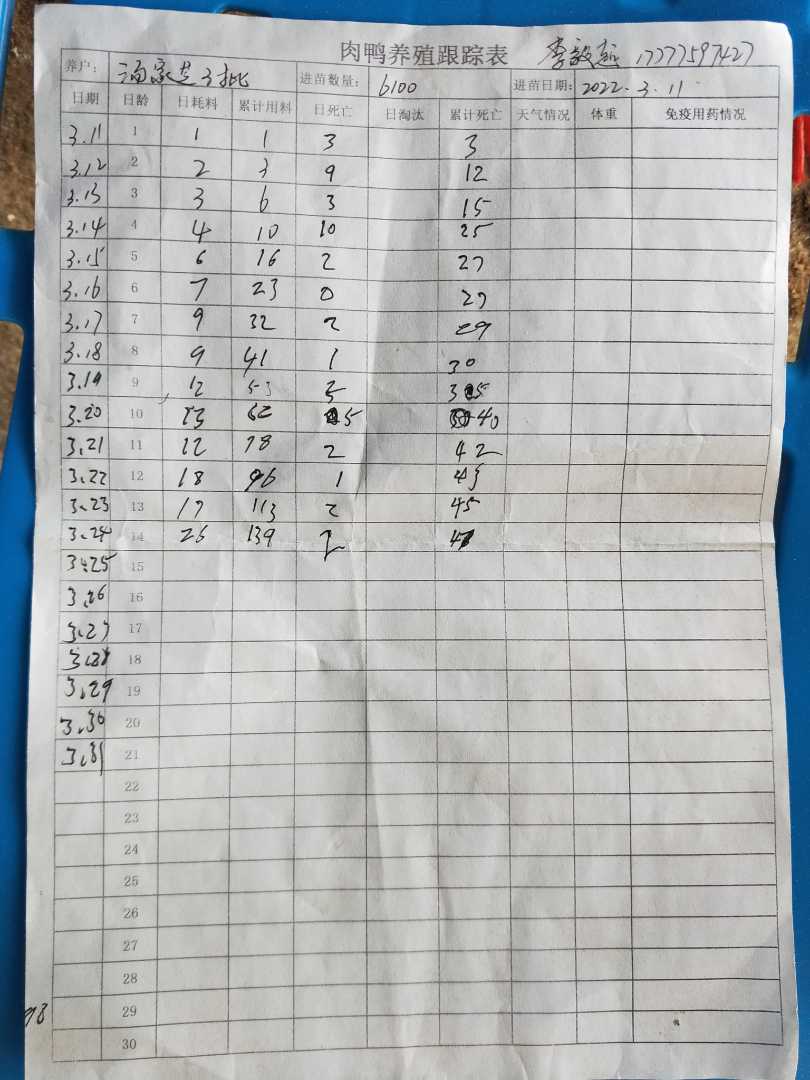 肉鸭养殖跟踪表 李毅越 17777597427
养户: 汤家芝3批 进苗数量: 6100 进苗日期: 2022.3.11
日期 日龄 日耗料 累计用料 日死亡 日淘汰 累计死亡 天气情况 体重 免疫用药情况
3.11 1 1 1 3 3
3.12 2 2 3 9 12
3.13 3 3 6 3 15
3.14 4 4 10 10 25
3.15 5 6 16 2 27
3.16 6 7 23 0 27
3.17 7 9 32 2 29
3.18 8 9 41 1 30
3.19 9 12 53 35
3.20 10 13 62 5 40
3.21 11 12 78 2 42
3.22 12 18 96 1 43
3.23 13 17 113 2 45
3.24 14 26 139 2 47
3.25 15
3.26 16
3.27 17
3.28 18
3.29 19
3.30 20
3.31 21
22
23
24
25
26
27
28
29
30